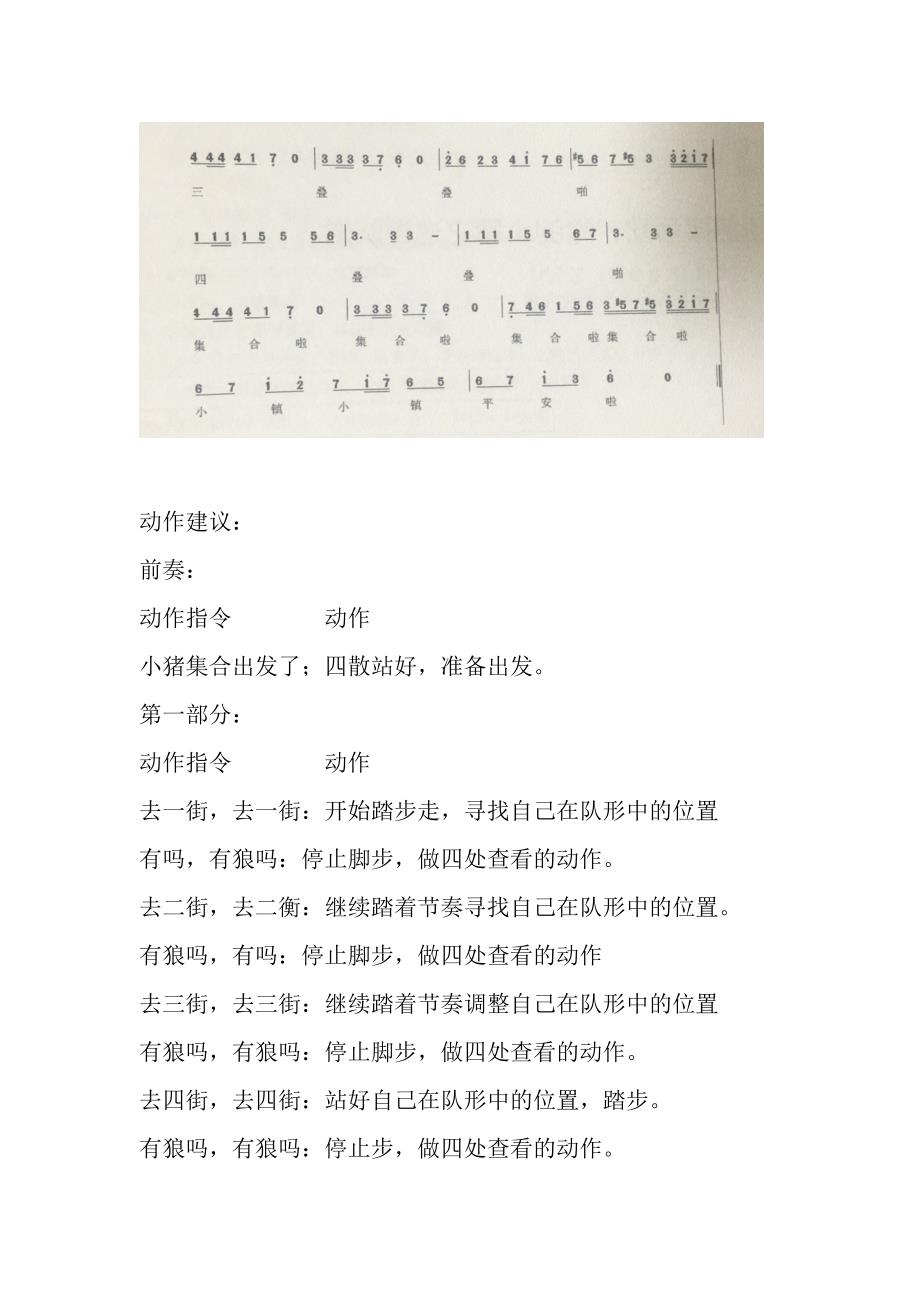 4 44 4 1 7 0 | 3 33 3 7 6 0 | 2 6 2 3 4 1 7 6 | #5 6 7 #5 3 3 2 1 7
三 叠 叠 啪
1 11 1 5 5 5 6 | 3. 3 3 － | 1 11 1 5 5 6 7 | 3. 3 3 －
四 叠 叠 啪
4 44 4 1 7 0 | 3 33 3 7 6 0 | 7 4 6 1 5 6 3 #5 7 #5 3 2 1 7
集 合 啦 集 合 啦 集 合 啦 集 合 啦
6 7 1 2 7 1 7 6 5 | 6 7 1 3 6 0
小 镇 小 镇 平 安 啦
动作建议：
前奏：
动作指令 动作
小猪集合出发了；四散站好，准备出发。
第一部分：
动作指令 动作
去一街，去一街：开始踏步走，寻找自己在队形中的位置
有吗，有狼吗：停止脚步，做四处查看的动作。
去二街，去二衡：继续踏着节奏寻找自己在队形中的位置。
有狼吗，有吗：停止脚步，做四处查看的动作
去三街，去三街：继续踏着节奏调整自己在队形中的位置
有狼吗，有狼吗：停止脚步，做四处查看的动作。
去四街，去四街：站好自己在队形中的位置，踏步。
有狼吗，有狼吗：停止步，做四处查看的动作。